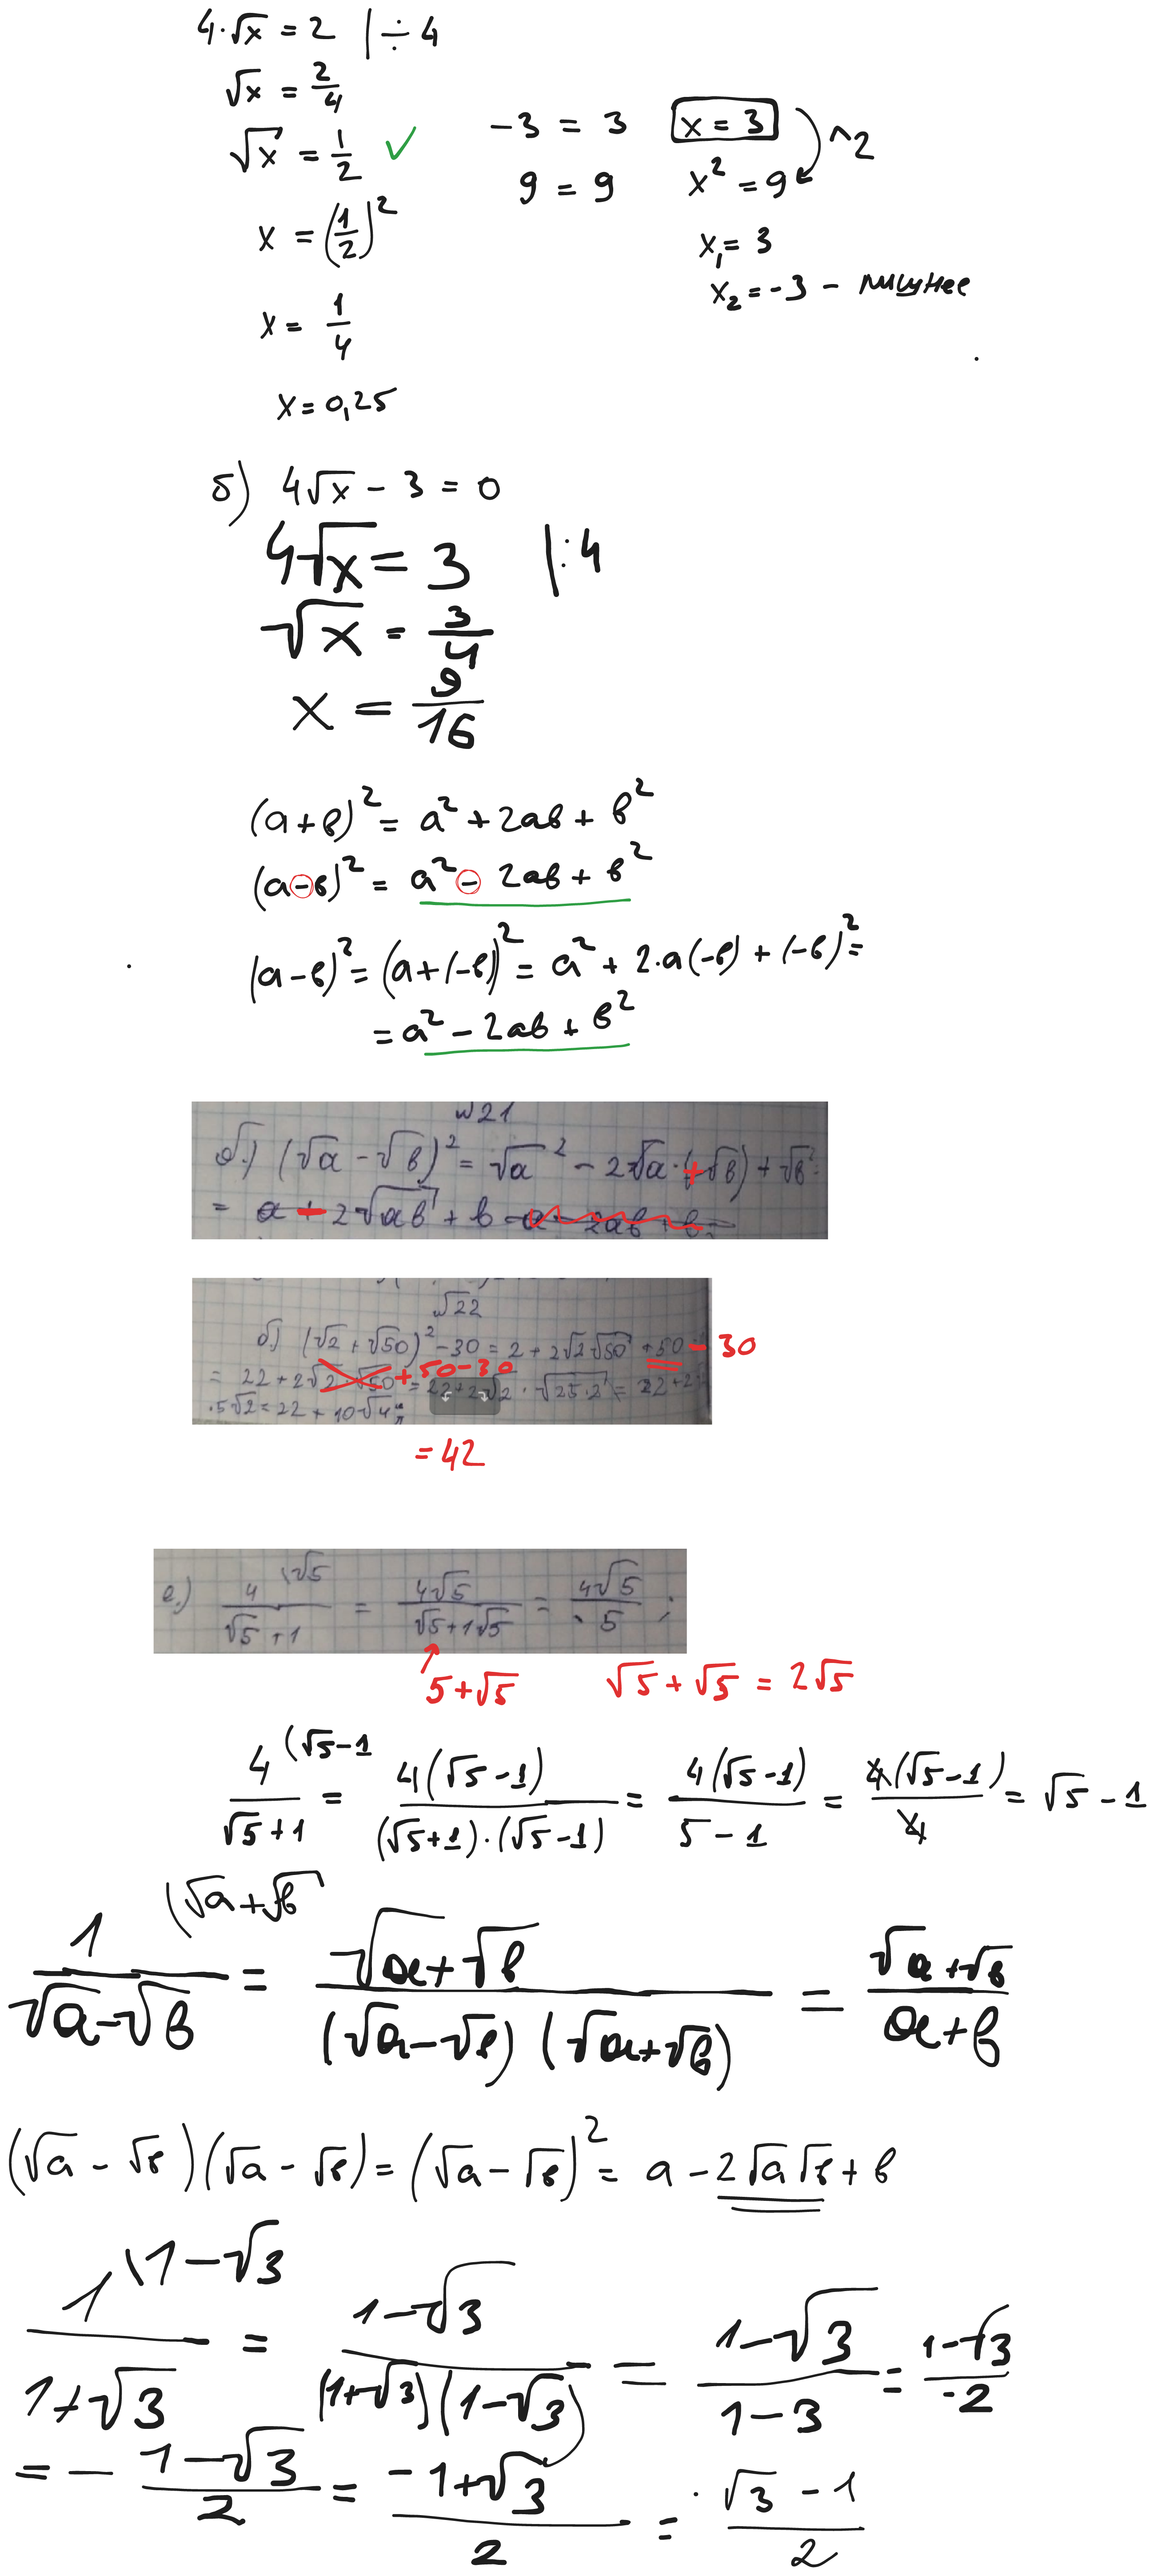 4·√x = 2 | ÷ 4
√x = 2/4
√x = 1/2 ✓
x = (1/2)²
x = 1/4
x = 0,25
-3 = 3
9 = 9
x = 3 ^2
x² = 9
x₁ = 3
x₂ = -3 - лишнее
б) 4√x - 3 = 0
4√x = 3 | :4
√x = 3/4
x = 9/16
(a + в)² = a² + 2aв + в²
(a - в)² = a² - 2aв + в²
(a - в)² = (a + (-в))² = a² + 2·a(-в) + (-в)² =
= a² - 2aв + в²
№21
б.) (√a - √в)² = √a² - 2√a·(+√в) + √в² =
= a - 2√aв + в - a - 2aв + в
√22
б.) (√2 + √50)² - 30 = 2 + 2√2√50 + 50 - 30
= 22 + 2√2·√50 + 50 - 30 = 22 + 2√2 · √25·2 = 22 + 2
·5√2 = 22 + 10√4
= 42
е.) 4/(√5 + 1) \√5 = 4√5/(√5 + 1√5) = 4√5/5 ;
5 + √5
√5 + √5 = 2√5
4/(√5 + 1) (√5 - 1 = 4(√5 - 1)/((√5 + 1)·(√5 - 1)) = 4(√5 - 1)/(5 - 1) = 4(√5 - 1)/4 = √5 - 1
1/(√a - √в) (√a + √в = (√a + √в)/((√a - √в)(√a + √в)) = (√a + √в)/(a + в)
(√a - √в)(√a - √в) = (√a - √в)² = a - 2√a√в + в
1/(1 + √3) \1 - √3 = (1 - √3)/((1 + √3)(1 - √3)) = (1 - √3)/(1 - 3) = (1 - √3)/-2
= - (1 - √3)/2 = (-1 + √3)/2 = (√3 - 1)/2